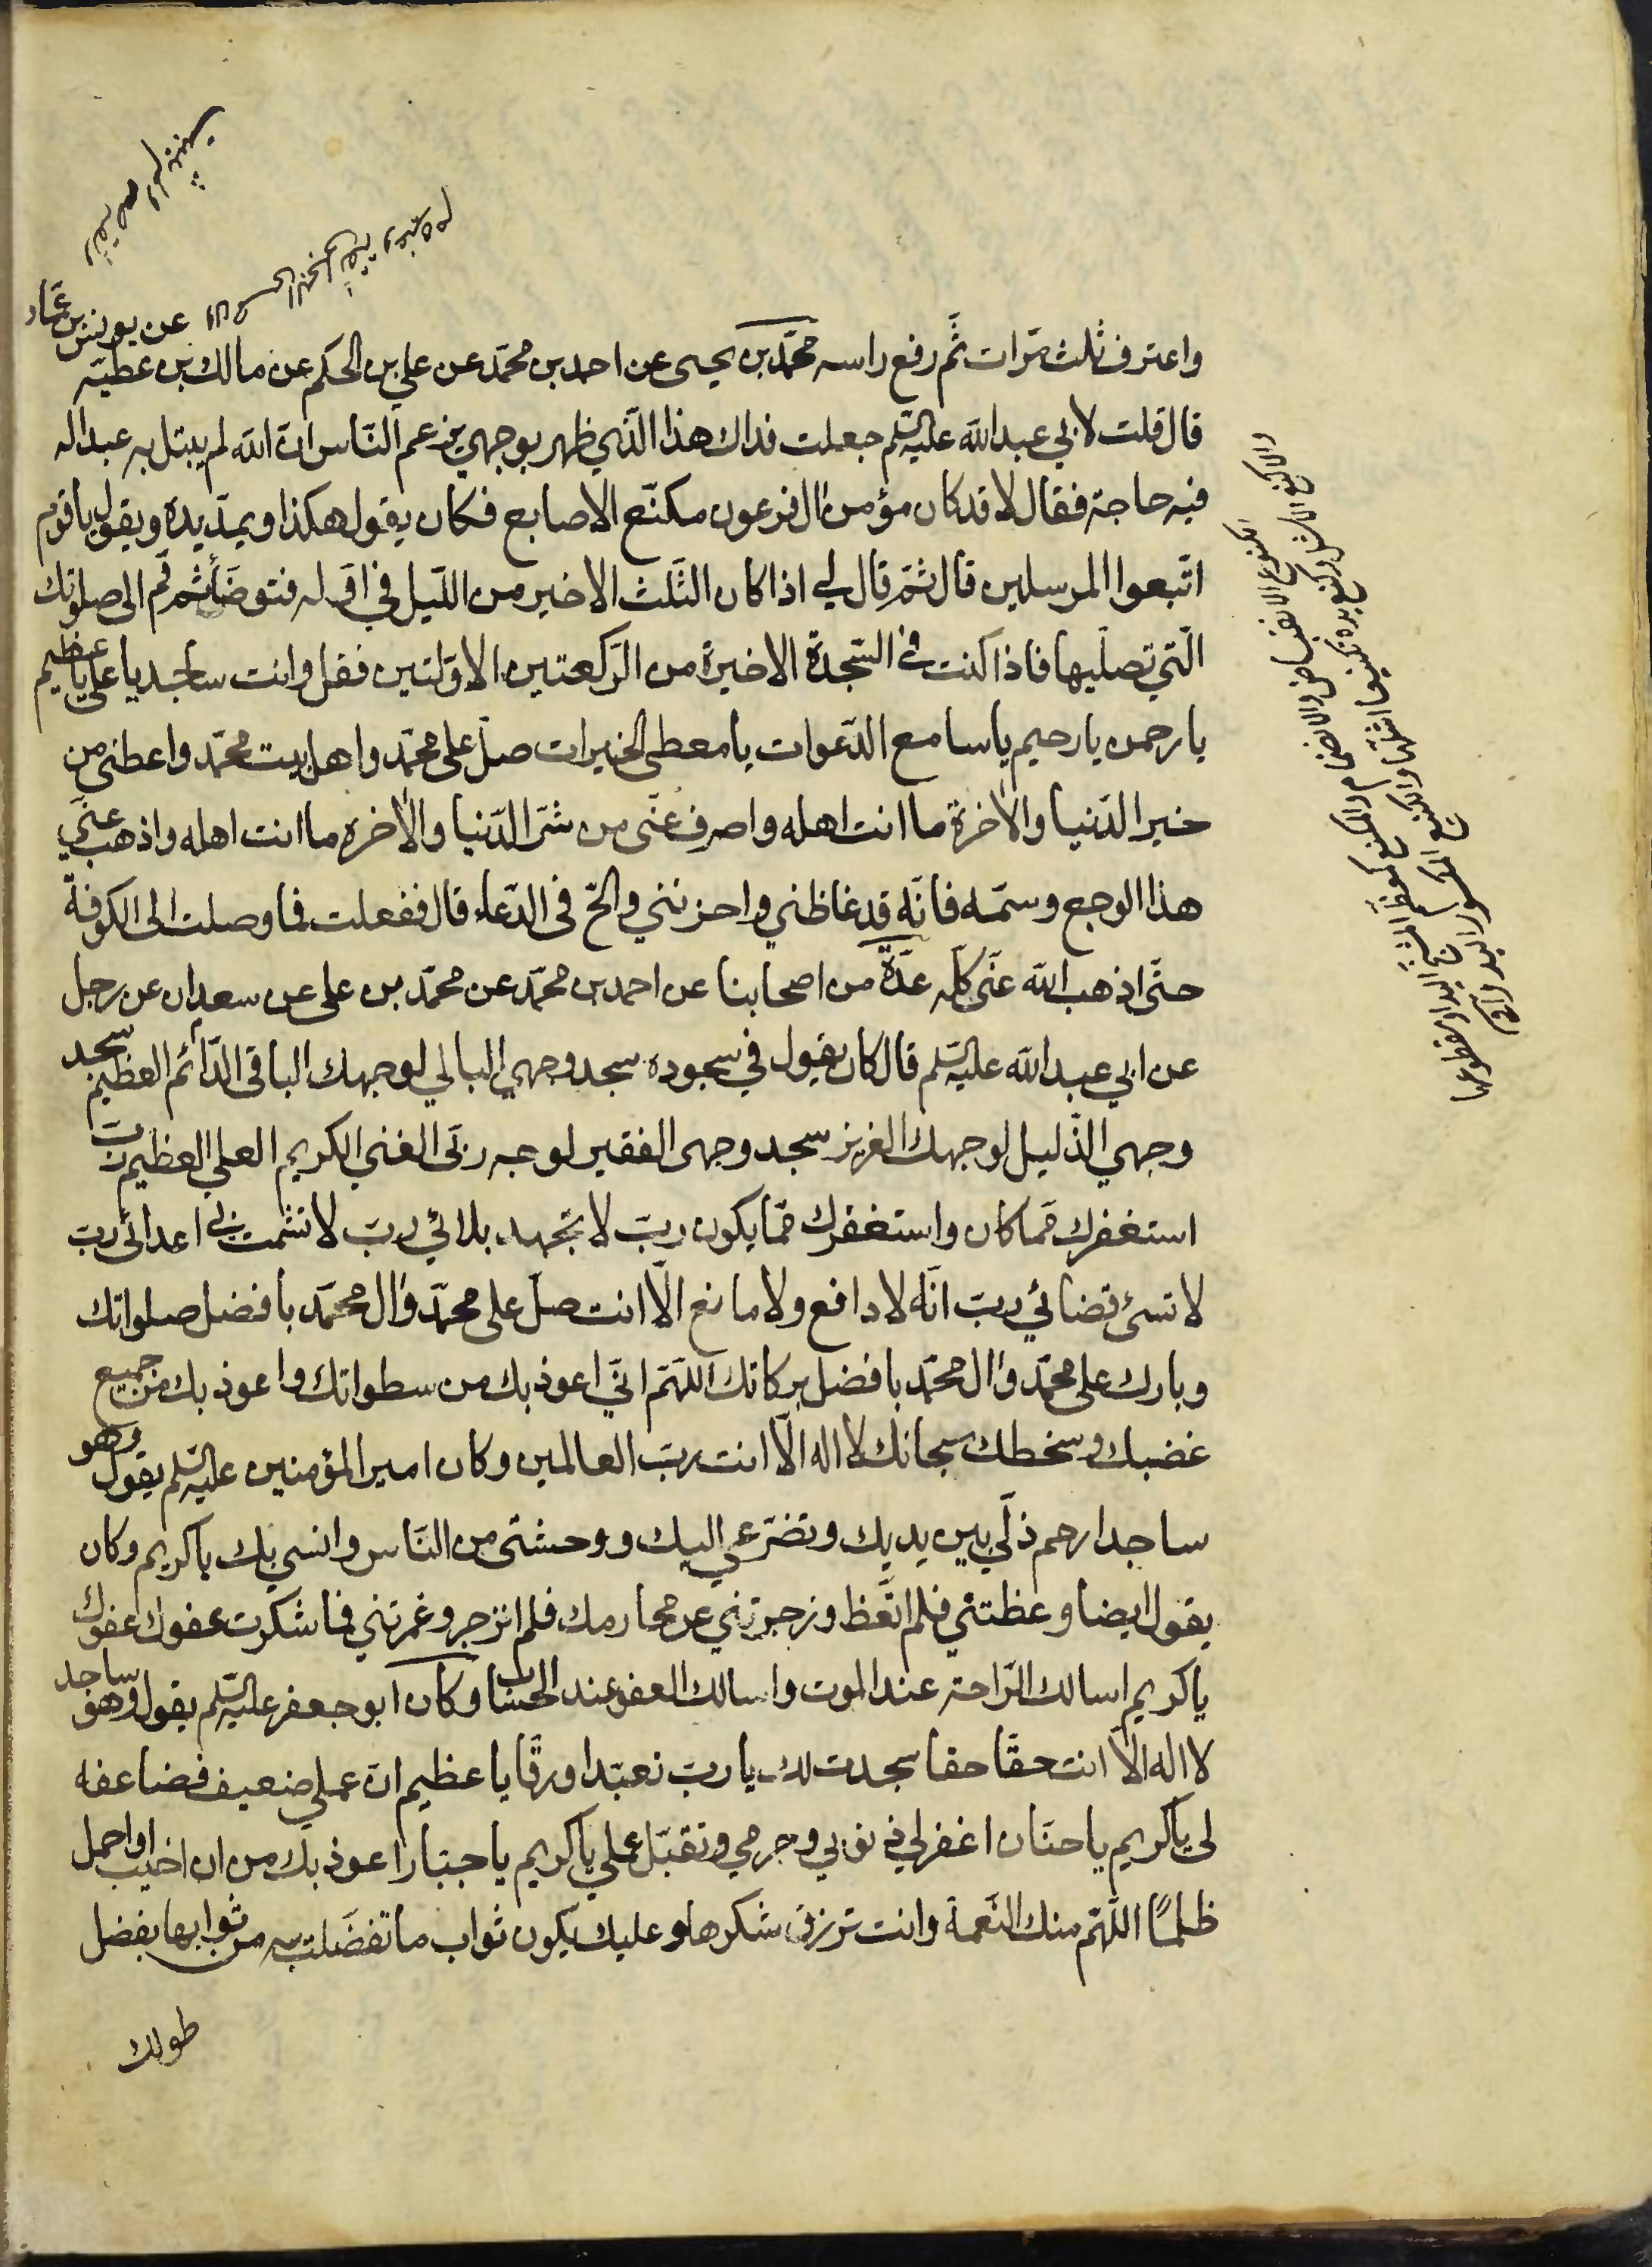 عن يونس بن عمّار
واعترف ثلث مرّات ثمّ رفع راسه محمّد بن يحيى عن احمد بن محمّد عن علي بن الحكم عن مالك بن عطيّه
قال قلت لابي عبد الله عليه السلم جعلت فداك هذا الذي ظهر بوجهي يزعم النّاس انّ الله لم يبتل به عبدا له
فيه حاجة فقال لا قد كان مؤمن ال فرعون مكنّع الاصابع فكان يقول هكذا ويمدّ يده ويقول يا قوم
اتّبعوا المرسلين قال ثمّ قال لي اذا كان الثّلث الاخير من اللّيل في اوّله فتوضّأ ثم قم الى صلوتك
الّتي تصلّيها فاذا كنت في السّجدة الاخيرة من الرّكعتين الاوّلتين فقل وانت ساجد يا علي يا عظيم
يا رحمن يا رحيم يا سامع الدّعوات يا معطي الخيرات صلّ على محمّد واهل بيت محمّد واعطني من
خير الدّنيا والاخرة ما انت اهله واصرف عنّى من شرّ الدّنيا والاخره ما انت اهله واذهب عنّي
هذا الوجع وسمّه فانّه قد غاظني واحزنني والحّ فى الدّعاء قال ففعلت فما وصلت الى الكوفة
حتّى اذهب الله عنّى كلّه عدّة من اصحابنا عن احمد بن محمّد عن محمّد بن على عن سعدان عن رجل
عن ابي عبد الله عليه السلم قال كان يقول في سجوده سجد وجهي البالي لوجهك الباقى الدّائم العظيم سجد
وجهي الذّليل لوجهك العزيز سجد وجهى الفقير لوجه ربّى الغني الكريم العلي العظيم ربّ
استغفرك ممّا كان واستغفرك ممّا يكون ربّ لا تجهد بلائي ربّ لا تشمت بي اعدائى ربّ
لا تسئ قضائي ربّ انّه لا دافع ولا مانع الّا انت صلّ على محمّد وال محمّد بافضل صلواتك
وبارك على محمّد وال محمّد بافضل بركاتك اللّهمّ انّي اعوذ بك من سطواتك واعوذ بك من جميع
غضبك وسخطك سبحانك لا اله الّا انت ربّ العالمين وكان امير المؤمنين عليه السلم يقول وهو
ساجد ارحم ذلّي بين يديك وتضرّعي اليك ووحشتى من النّاس وانسي بك يا كريم وكان
يقول ايضا وعظتني فلم اتّعظ وزجرتني عن محارمك فلم انزجر وغمرتني فما شكرت عفوك عفوك
يا كريم اسالك الرّاحة عند الموت واسالك العفو عند الحساب وكان ابو جعفر عليه السلم يقول وهو ساجد
لا اله الّا انت حقّا حقا سجدت لك يا ربّ تعبّدا ورقّا يا عظيم انّ عملي ضعيف فضاعفه
لى يا كريم يا حنّان اغفر لي ذنوبي وجرمي وتقبّل عملي يا كريم يا جبّار اعوذ بك من ان اخيب او احمل
ظلمًا اللّهمّ منك النّعمة وانت ترزق شكرها وعليك يكون ثواب ما تفضّلت به من ثوابها بفضل
طولك
الكنوع الانقباض والانضمام والمكنع كمعظم